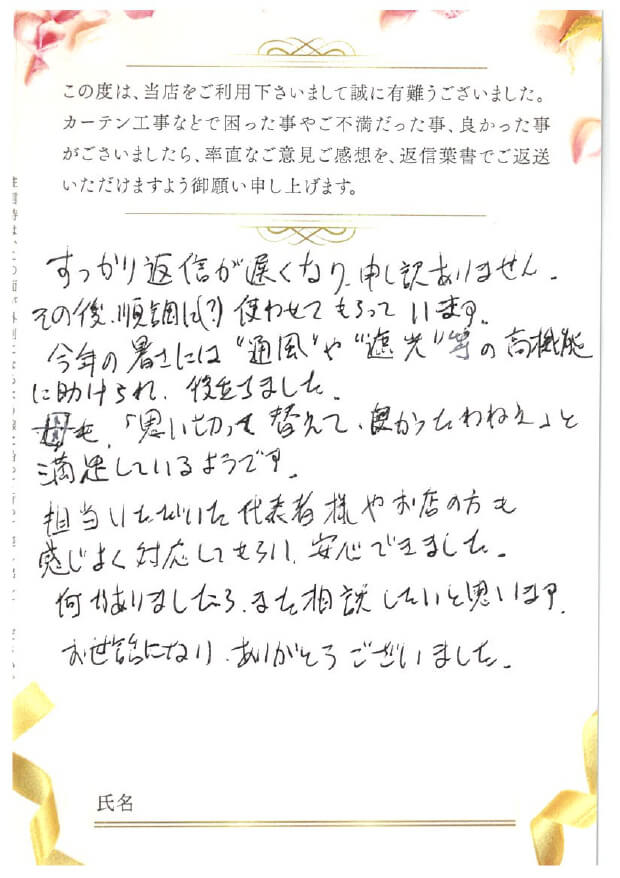 この度は、当店をご利用下さいまして誠に有難うございました。
カーテン工事などで困った事やご不満だった事、良かった事
がございましたら、率直なご意見ご感想を、返信葉書でご返送
いただけますよう御願い申し上げます。
すっかり返信が遅くなり、申し訳ありません。
その後、順調に(?)使わせてもらっています。
今年の暑さには"通風"や"遮光"等の高機能
に助けられ、役立ちました。
母も、「思い切って替えて、良かったわねえ」と
満足しているようです。
担当いただいた代表者様やお店の方も
感じよく対応してもらい、安心できました。
何かありましたら、また相談したいと思います。
お世話になり、ありがとうございました。
氏名